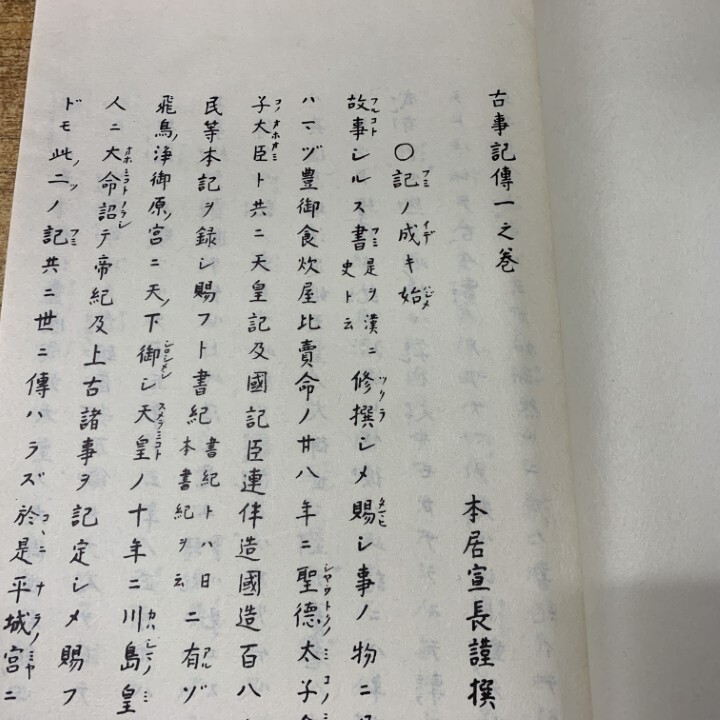 古事記傳一之巻
本居宣長謹撰
〇記ノ成キ始
故事シルス書是ヲ漢ニ史ト云修撰シメ賜シ事ノ物ニ
ハマヅ豊御食炊屋比賣命ノ廿八年ニ聖德太子
子大臣ト共ニ天皇記及國記臣連伴造國造百八
民等本記ヲ録シ賜フト書紀書紀トハ日本書紀ヲ云ニ有ゾ
飛鳥ノ浄御原ノ宮ニ天ノ下御シ天皇ノ十年ニ川島皇
人ニ大命詔テ帝紀及上古諸事ヲ記定シメ賜フ
ドモ此二ノ記共ニ世ニ傳ハラズ於是平城宮ニ